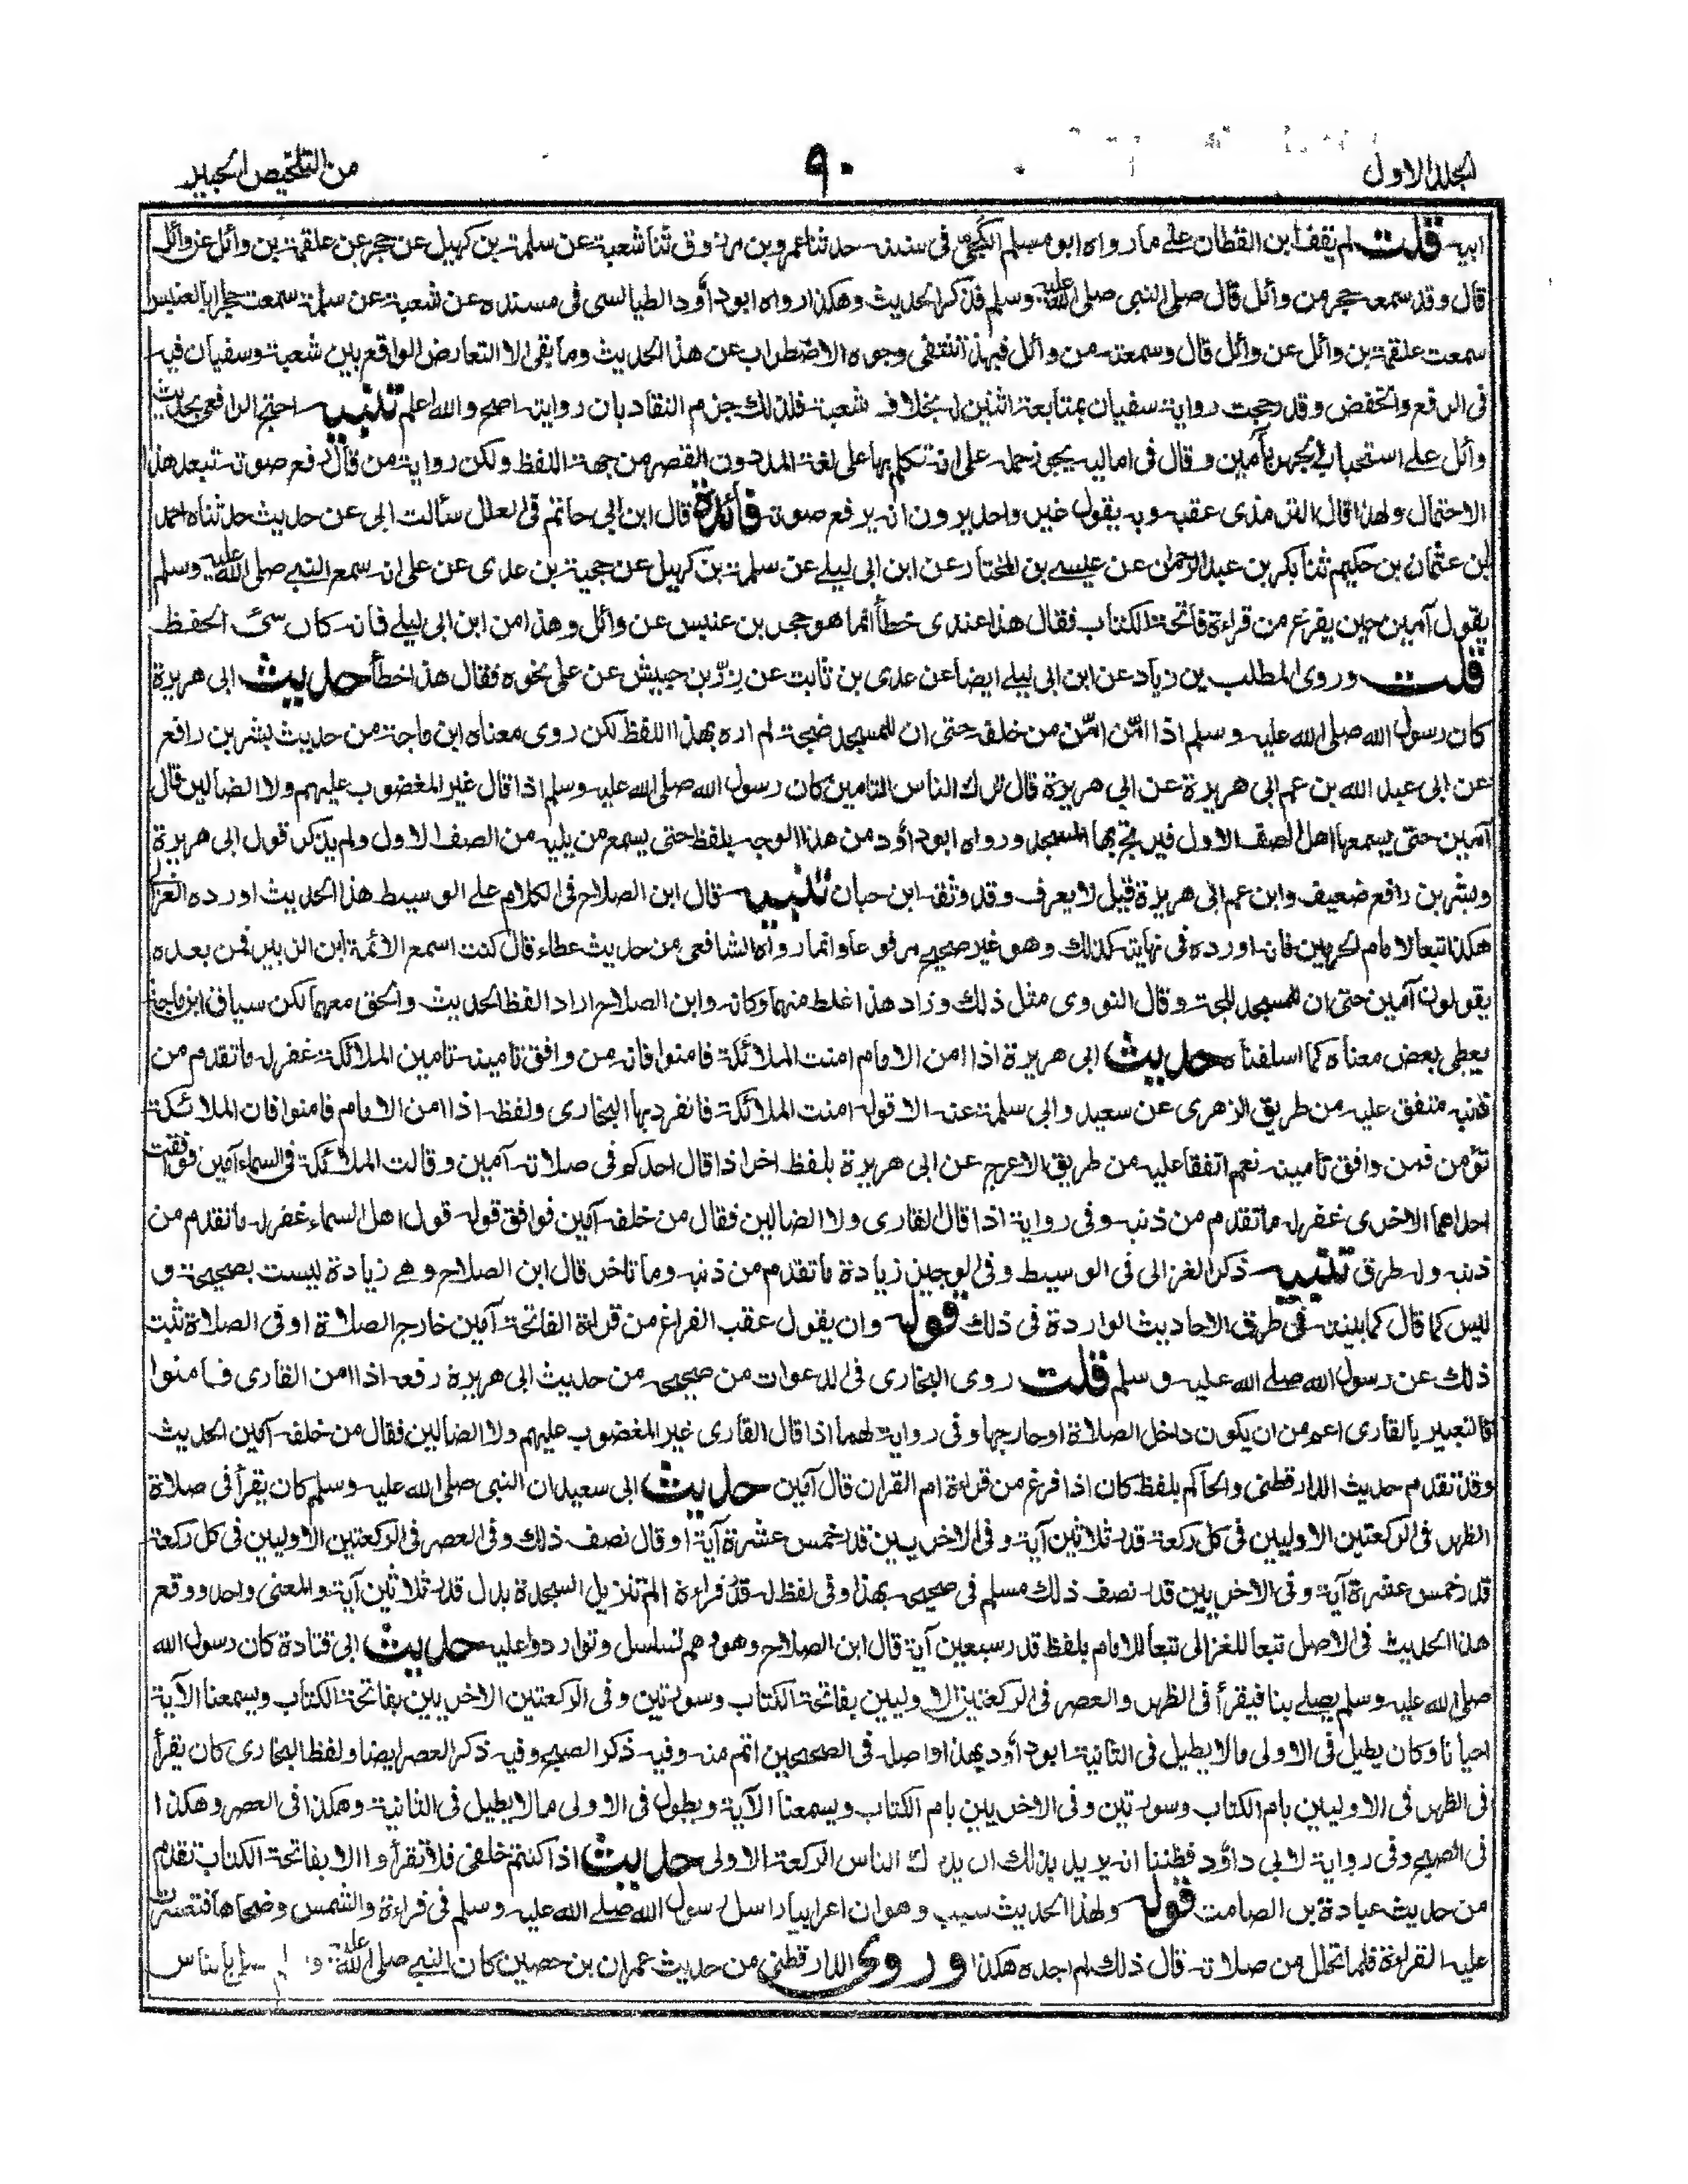 المجلد الاول
٩٠
من التلخيص الحبير
ابيه قلت لم يقف ابن القطان على ما رواه ابو مسلم الكجى فى سننه حدثنا عمرو بن مرزوق ثنا شعبة عن سلمة بن كهيل عن حجر عن علقمة بن وائل عن وائل
قال وقد سمعه حجر من وائل قال صلى النبى صلى الله عليه وسلم فذكر الحديث وهكذا رواه ابو داؤد الطيالسى فى مسنده عن شعبة عن سلمة سمعت حجرا ابا العنبس
سمعت علقمة بن وائل عن وائل قال وسمعته من وائل فبهذا تنتفى وجوه الاضطراب عن هذا الحديث وما بقى الا التعارض الواقع بين شعبة وسفيان فيه
فى الرفع والخفض وقد رجحت رواية سفيان بمتابعة اثنين له بخلاف شعبة فلذلك جزم النقاد بان روايته اصح والله اعلم تنبيه احتج الرافعى بحديث
وائل على استحباب الجهر بآمين وقال فى اماليه يجوز حمله على انه تكلم بها على لغة المد دون القصر من جهة اللفظ ولكن رواية من قال رفع صوته تبعد هذا
الاحتمال ولهذا قال الترمذى عقبه وبه يقول غير واحد يرون انه يرفع صوته فائدة قال ابن ابى حاتم فى العلل سألت ابى عن حديث حدثناه احمد
ابن عثمان بن حكيم ثنا بكر بن عبد الرحمن عن عيسى بن المختار عن ابن ابى ليلى عن سلمة بن كهيل عن حجية بن عدى عن على انه سمع النبى صلى الله عليه وسلم
يقول آمين حين يفرغ من قراءة فاتحة الكتاب فقال هذا عندى خطأ انما هو حجر بن عنبس عن وائل وهذا من ابن ابى ليلى فانه كان سئ الحفظ
قلت وروى المطلب بن زياد عن ابن ابى ليلى ايضا عن عدى بن ثابت عن زرّ بن حبيش عن على نحوه فقال هذا خطأ حديث ابى هريرة
كان رسول الله صلى الله عليه وسلم اذا امّن امّن من خلفه حتى ان للمسجد ضجة لم اره بهذا اللفظ لكن روى معناه ابن ماجة من حديث بشر بن رافع
عن ابى عبد الله بن عم ابى هريرة عن ابى هريرة قال ترك الناس التامين كان رسول الله صلى الله عليه وسلم اذا قال غير المغضوب عليهم ولا الضالين قال
آمين حتى يسمعها اهل الصف الاول فيرتج بها المسجد ورواه ابو داؤد من هذا الوجه بلفظ حتى يسمع من يليه من الصف الاول ولم يذكر قول ابى هريرة
وبشر بن رافع ضعيف وابن عم ابى هريرة قيل لا يعرف وقد وثقه ابن حبان تنبيه قال ابن الصلاح فى الكلام على الوسيط هذا الحديث اورده الغزالى
هكذا تبعا لامام الحرمين فانه اورده فى نهايته كذلك وهو غير صحيح مرفوعا وانما رواه الشافعى من حديث عطاء قال كنت اسمع الأئمة ابن الزبير فمن بعده
يقولون آمين حتى ان للمسجد للجة وقال النووى مثل ذلك وزاد هذا غلط منهما وكانه وابن الصلاح اراد لفظ الحديث والحق معهما لكن سياق ابن ماجة
يعطى بعض معناه كما اسلفناه حديث ابى هريرة اذا امن الامام امنت الملائكة فامنوا فانه من وافق تامينه تامين الملائكة غفر له ما تقدم من
ذنبه متفق عليه من طريق الزهرى عن سعيد وابى سلمة عنه الا قوله امنت الملائكة فانفرد بها البخارى ولفظه اذا امن الامام فامنوا فان الملائكة
تؤمن فمن وافق تأمينه نعم اتفقا عليه من طريق الاعرج عن ابى هريرة بلفظ اخر اذا قال احدكم فى صلاته آمين وقالت الملائكة فى السماء آمين فوافقت
احداهما الاخرى غفر له ما تقدم من ذنبه وفى رواية اذا قال القارى ولا الضالين فقال من خلفه آمين فوافق قوله قول اهل السماء غفر له ما تقدم من
ذنبه وله طرق تنبيه ذكر الغزالى فى الوسيط وفى الوجيز زيادة ما تقدم من ذنبه وما تاخر قال ابن الصلاح وهى زيادة ليست بصحيحة و
ليس كما قال كما بينته فى طرق الاحاديث الواردة فى ذلك قوله وان يقول عقب الفراغ من قراءة الفاتحة آمين خارج الصلاة او فى الصلاة ثبت
ذلك عن رسول الله صلى الله عليه وسلم قلت روى البخارى فى الدعوات من صحيحه من حديث ابى هريرة رفعه اذا امن القارى فامنوا
فالتعبير بالقارى اعم من ان يكون داخل الصلاة او خارجها وفى رواية لهما اذا قال القارى غير المغضوب عليهم ولا الضالين فقال من خلفه آمين الحديث
وقد تقدم حديث الدارقطنى والحاكم بلفظ كان اذا فرغ من قراءة ام القران قال آمين حديث ابى سعيد ان النبى صلى الله عليه وسلم كان يقرأ فى صلاة
الظهر فى الركعتين الاوليين فى كل ركعة قدر ثلاثين آية وفى الاخريين قدر خمس عشرة آية او قال نصف ذلك وفى العصر فى الركعتين الاوليين فى كل ركعة
قدر خمس عشرة آية وفى الاخريين قدر نصف ذلك مسلم فى صحيحه بهذا وفى لفظ له قدر قراءة الم تنزيل السجدة بدل قدر ثلاثين آية والمعنى واحد ووقع
هذا الحديث فى الاصل تبعا للغزالى تبعا للامام بلفظ قدر سبعين آية قال ابن الصلاح وهو وهم تسلسل وتواردوا عليه حديث ابى قتادة كان رسول الله
صلى الله عليه وسلم يصلى بنا فيقرأ فى الظهر والعصر فى الركعتين الاوليين بفاتحة الكتاب وسورتين وفى الركعتين الاخريين بفاتحة الكتاب ويسمعنا الآية
احيانا وكان يطيل فى الاولى ما لا يطيل فى الثانية ابو داؤد بهذا واصله فى الصحيحين اتم منه وفيه ذكر الصبح وفيه ذكر العصر ايضا ولفظ البخارى كان يقرأ
فى الظهر فى الاوليين بام الكتاب وسورتين وفى الاخريين بام الكتاب ويسمعنا الآية ويطول فى الاولى ما لا يطيل فى الثانية وهكذا فى العصر وهكذا
فى الصبح وفى رواية لابى داؤد فظننا انه يريد بذلك ان يدرك الناس الركعة الاولى حديث اذا كنتم خلفى فلا تقرأوا الا بفاتحة الكتاب تقدم
من حديث عبادة بن الصامت قوله ولهذا الحديث سبب وهو ان اعرابيا راسل رسول الله صلى الله عليه وسلم فى قراءة والشمس وضحاها فتعسرت
عليه القراءة فلما تحلل من صلاته قال ذلك لم اجده هكذا وروى الدارقطنى من حديث عمران بن حصين كان النبى صلى الله عليه و لم بالناس